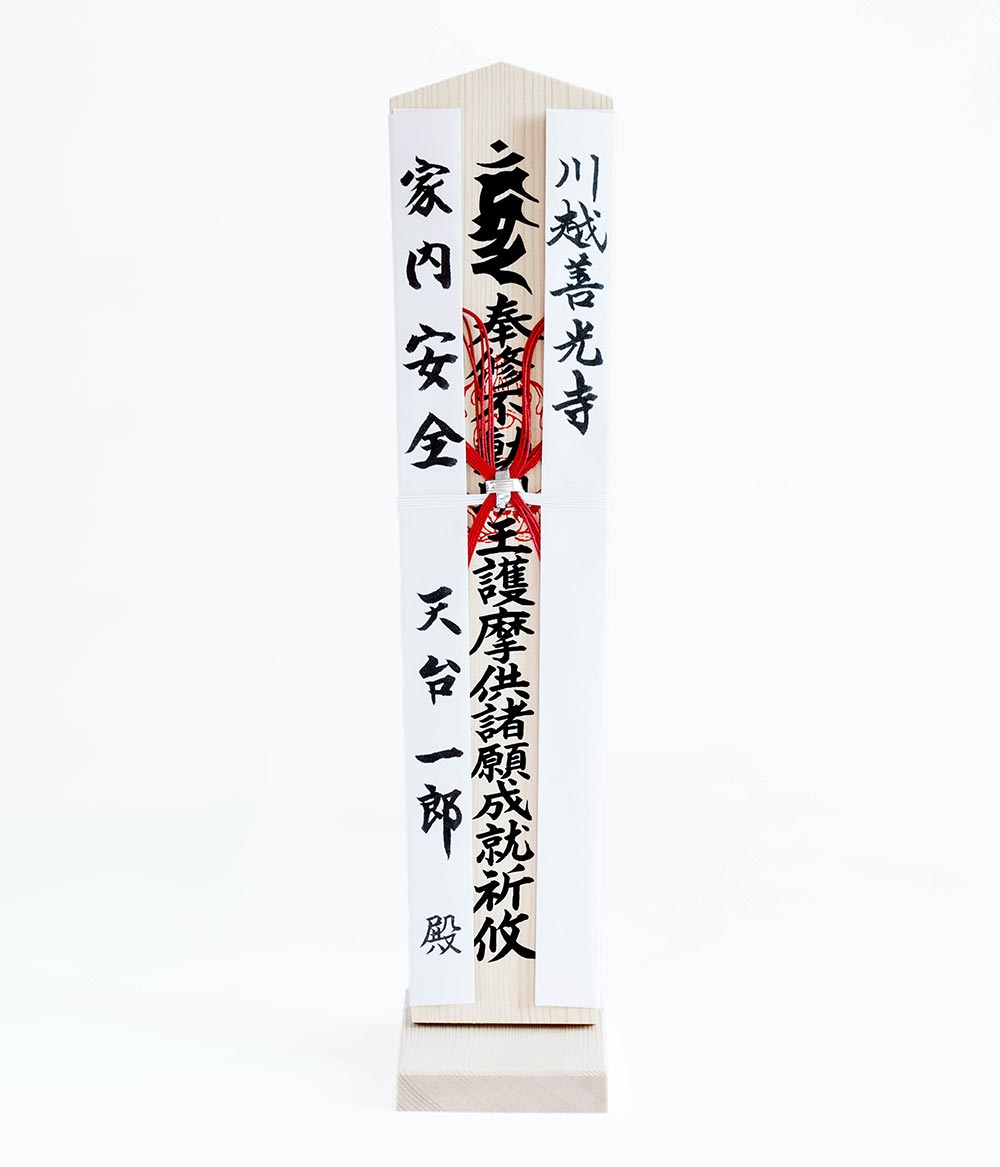 川越善光寺
奉修不動明王護摩供諸願成就祈攸
家内安全 天台一郎 殿